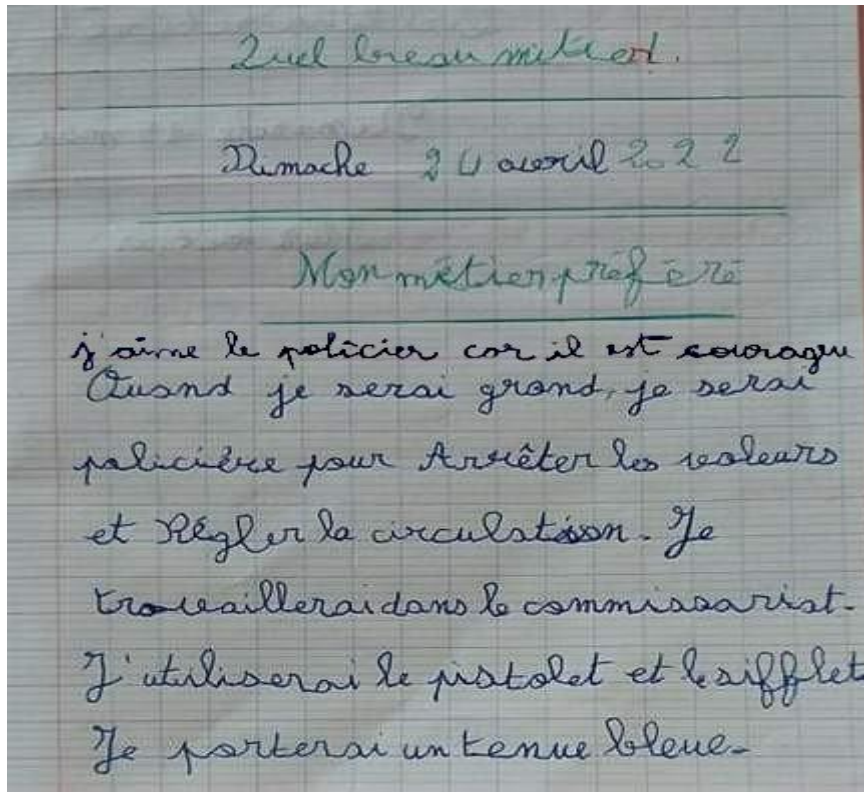 Quel beau métier.
Dimache 24 avril 2022
Mon métier préféré
j'aime le policier car il est courageu
Quand je serai grand, je serai
policière pour Arrêter les voleurs
et Régler la circulation. Je
travaillerai dans le commissariat.
J'utiliserai le pistolet et le sifflet
Je porterai un tenue bleue.